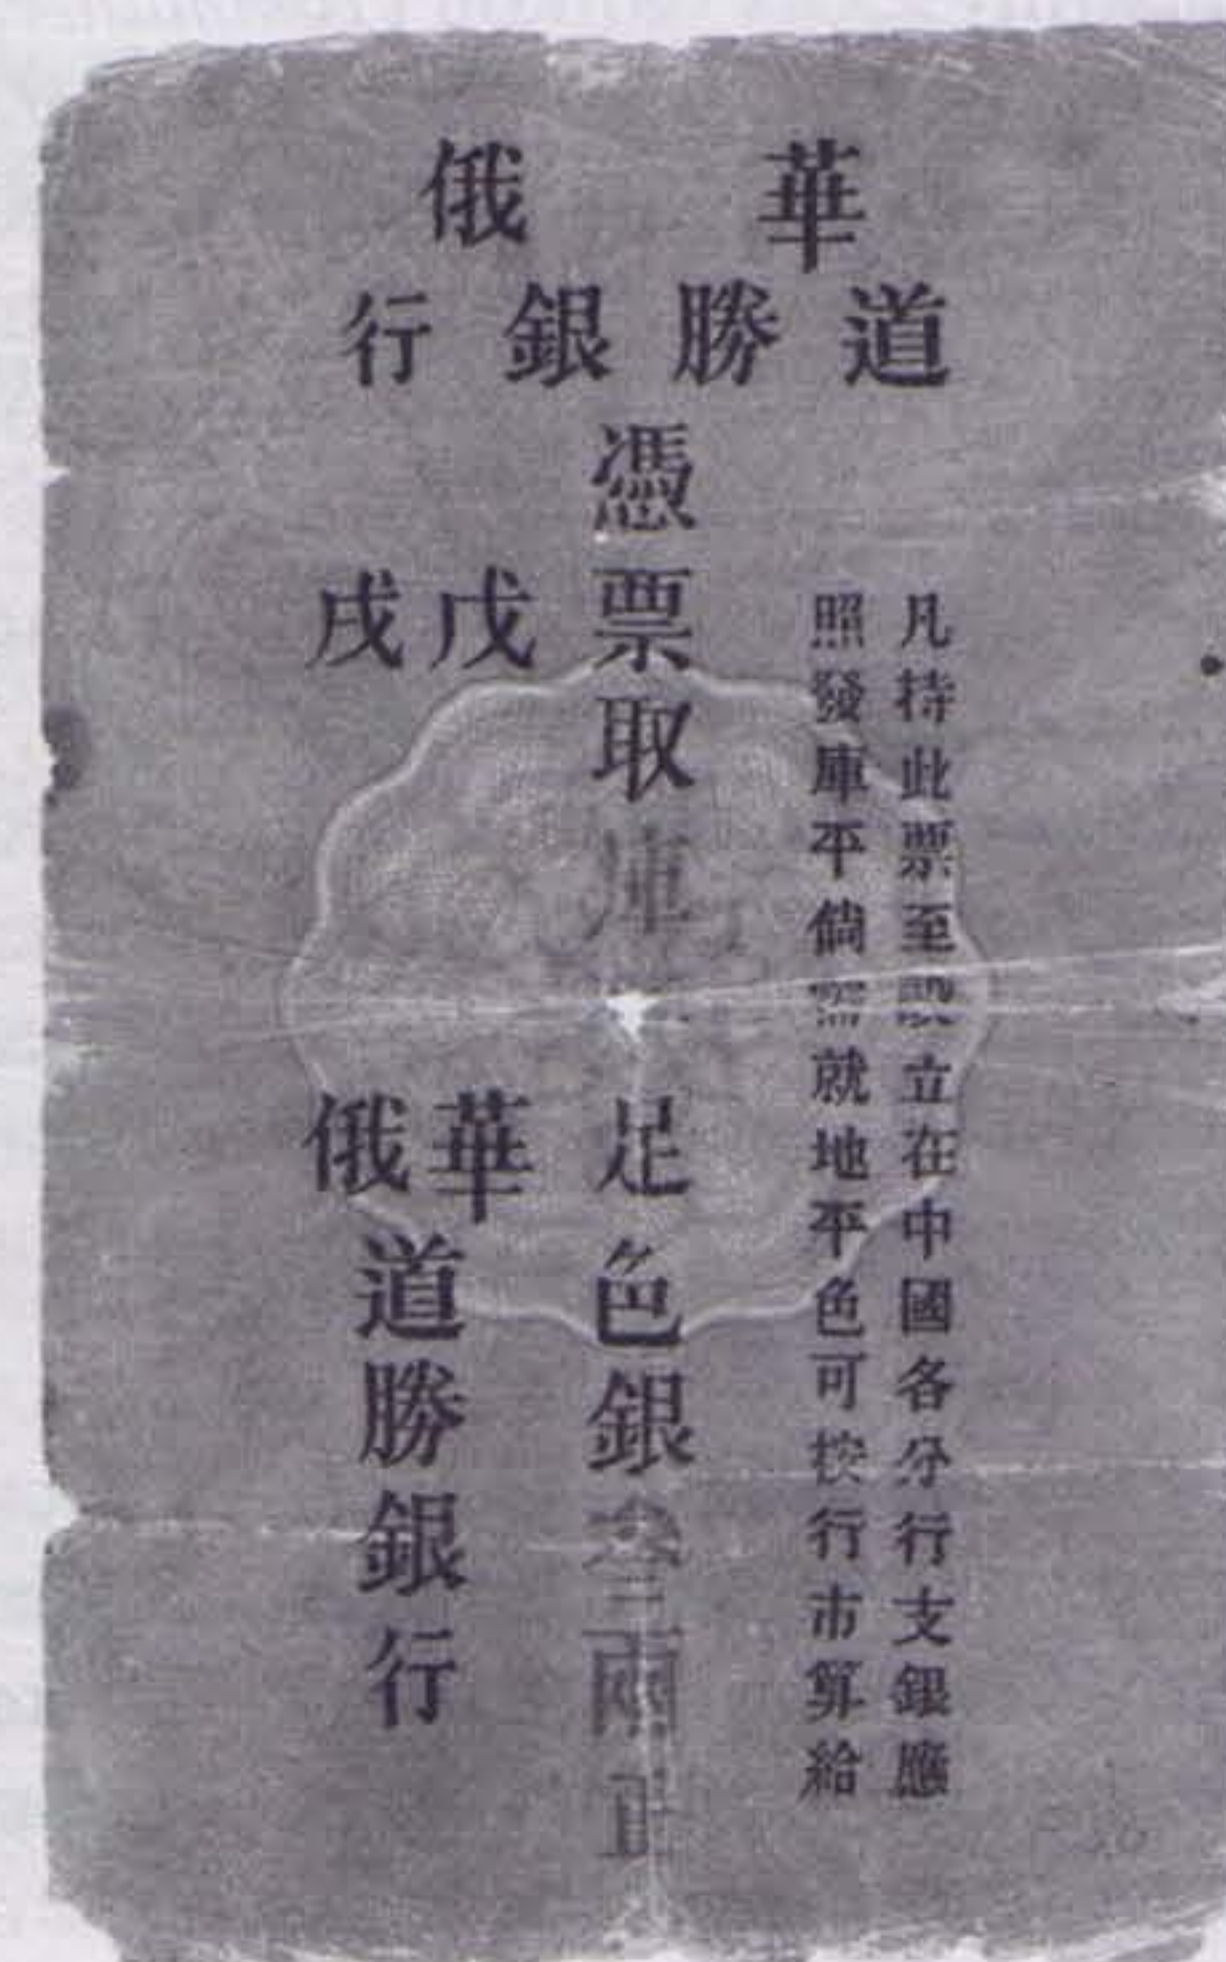 華俄
道勝銀行
凡持此票至設立在中國各分行支銀應
照發庫平倘照就地平色可按行市算給
憑票取庫足色銀叁兩正
戊戌
華俄
道勝銀行